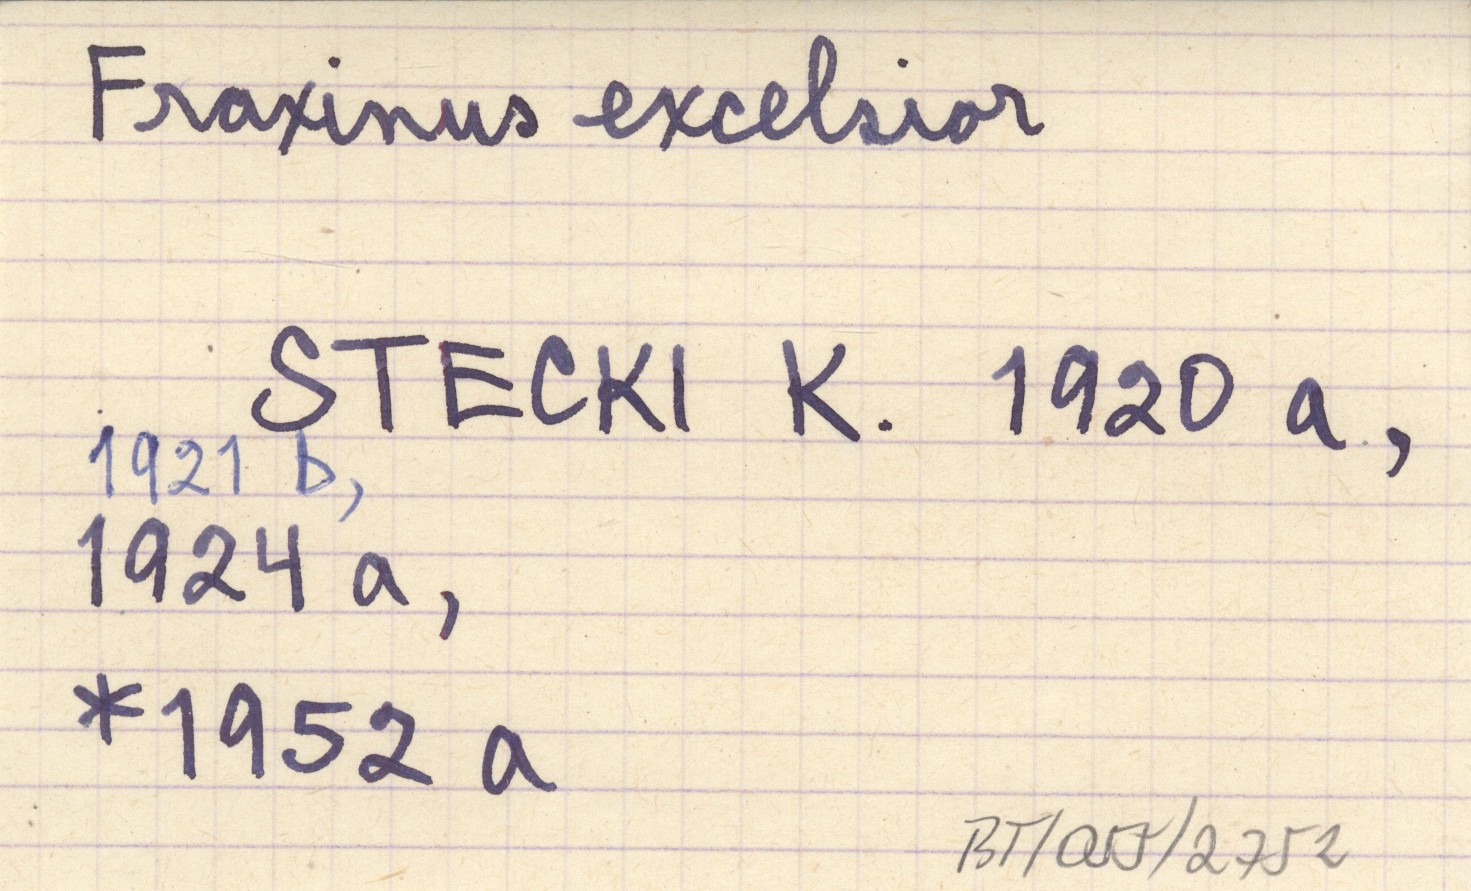 Fraxinus excelsior
STECKI K. 1920 a,
1921 b,
1924 a,
*1952 a